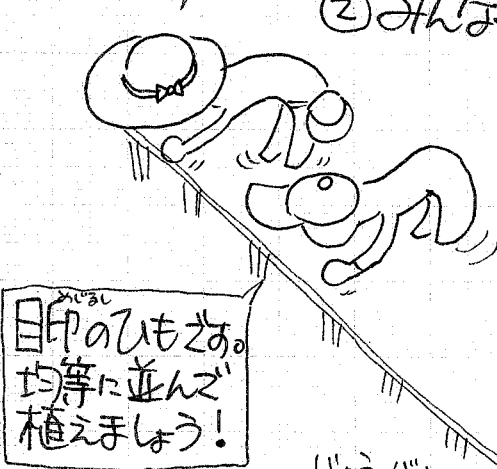 ②みんな
めじるし
目印のひもです。
均等に並んで
植えましょう！